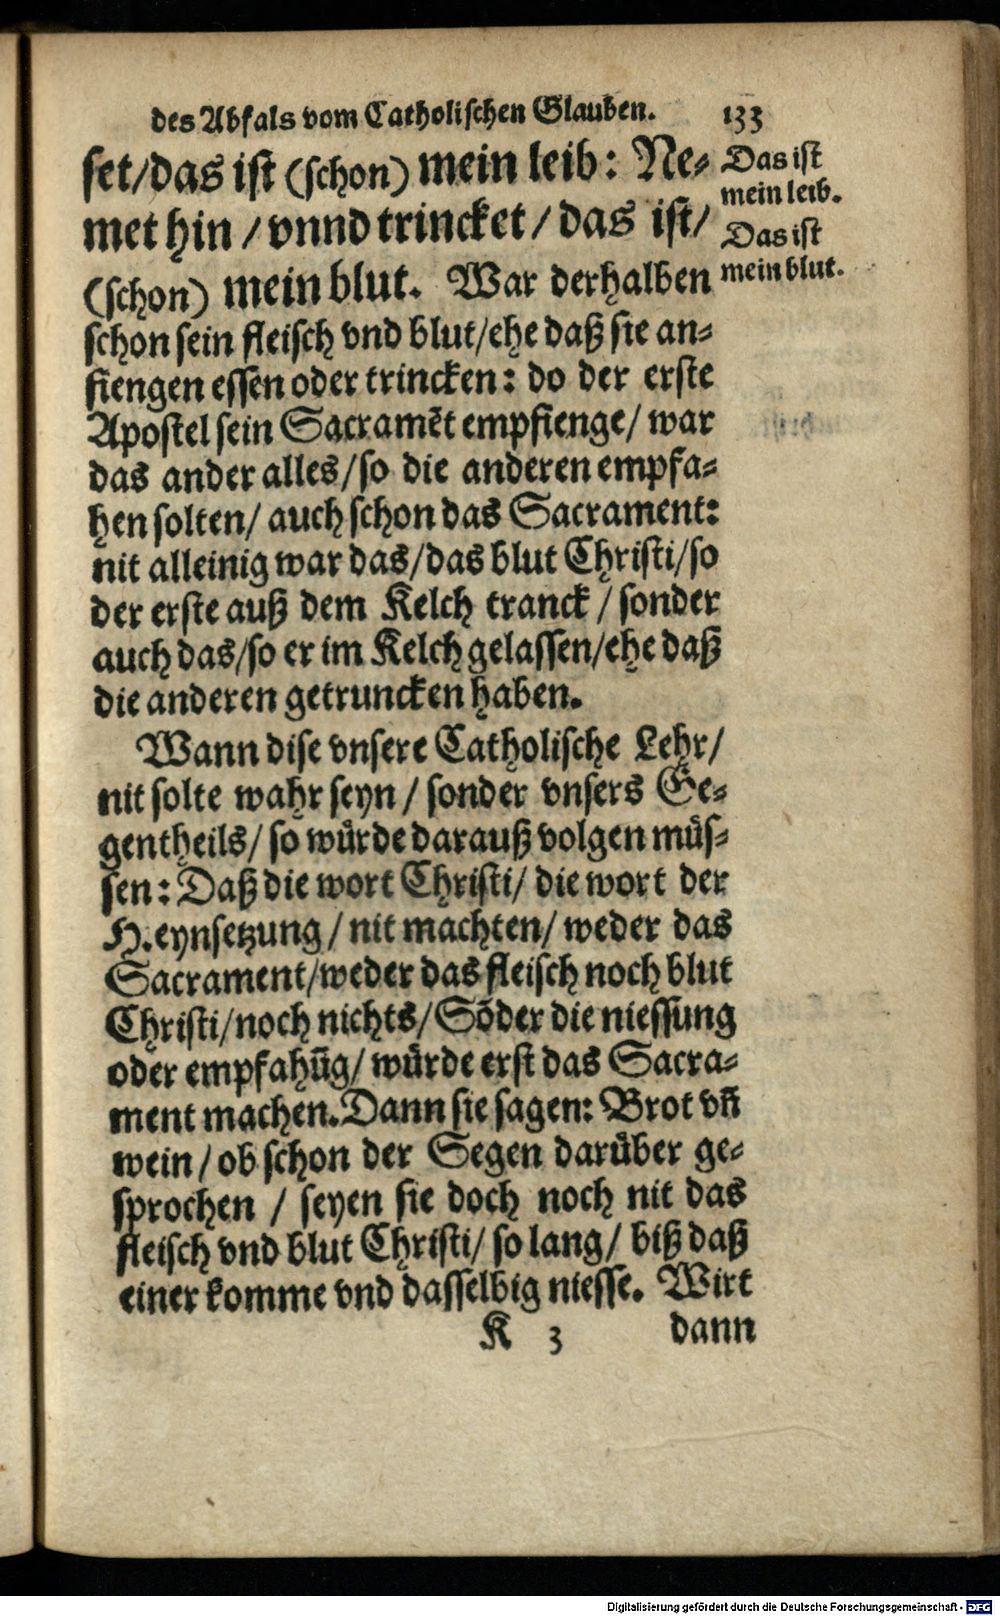 des Abfals vom Catholischen Glauben. 133
set/das ist (schon) mein leib: Ne-
met hin / vnnd trincket / das ist/
(schon) mein blut. War derhalben
schon sein fleisch vnd blut/ehe daß sie an-
fiengen essen oder trincken: do der erste
Apostel sein Sacramēt empfienge/ war
das ander alles/so die anderen empfa-
hen solten/ auch schon das Sacrament:
nit alleinig war das/das blut Christi/so
der erste auß dem Kelch tranck / sonder
auch das/so er im Kelch gelassen/ehe daß
die anderen getruncken haben.
Wann dise vnsere Catholische Lehr/
nit solte wahr seyn / sonder vnsers Ge-
gentheils/ so wuͤrde darauß volgen muͤs-
sen: Daß die wort Christi/ die wort der
H. eynsetzung / nit machten/ weder das
Sacrament/weder das fleisch noch blut
Christi/noch nichts/Sōder die niessung
oder empfahūg/ wuͤrde erst das Sacra-
ment machen. Dann sie sagen: Brot vñ
wein / ob schon der Segen daruͤber ge-
sprochen / seyen sie doch noch nit das
fleisch vnd blut Christi/ so lang/ biß daß
einer komme vnd dasselbig niesse. Wirt
K 3 dann
Das ist
mein leib.
Das ist
mein blut.
Digitalisierung gefördert durch die Deutsche Forschungsgemeinschaft - DFG